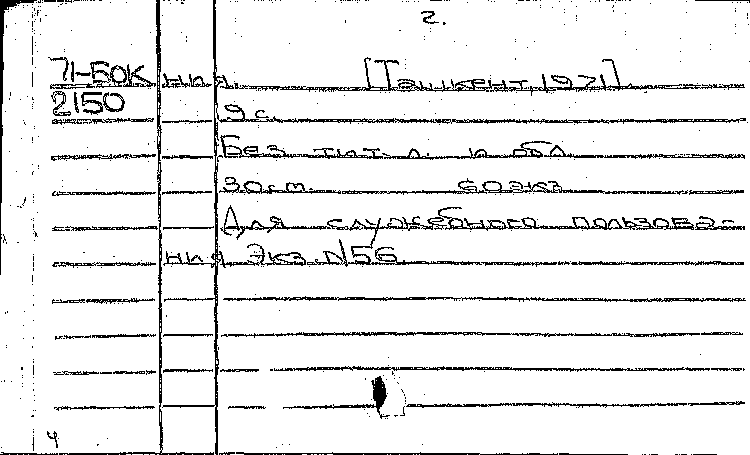 2.
71-БОК ния. [Ташкент, 1971].
2150 9 с.
Без тит. л. и обл.
30 см. 60 экз.
Для служебного пользова-
ния Экз. N56
4